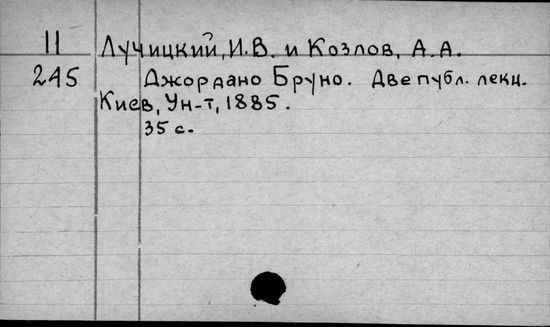 11 Лучицкий, И.В. и Козлов, А.А.
245 Джордано Бруно. Две публ. лекц.
Киев, Ун-т, 1885.
35 с.